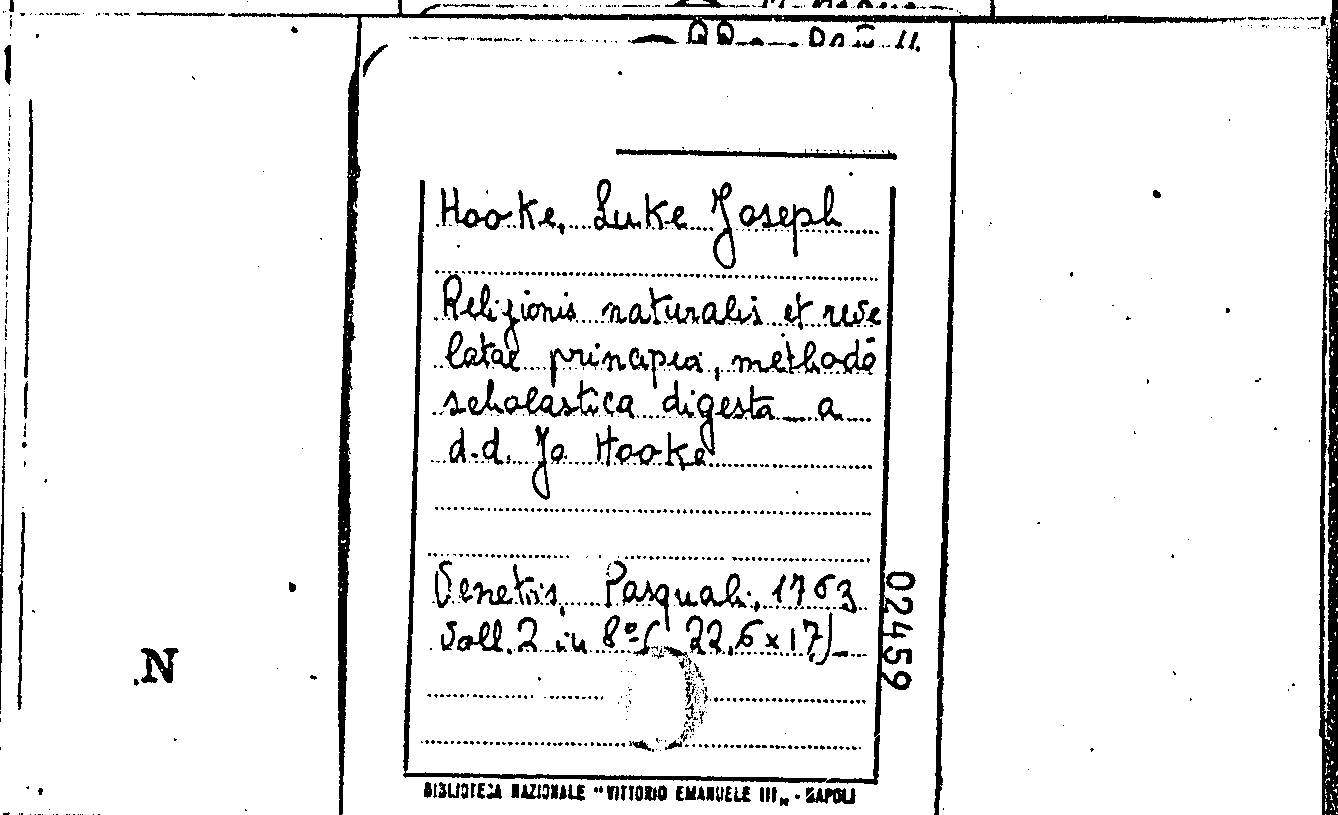 Hooke, Luke Joseph
Religionis naturalis et reve
latae principia, methodo
scholastica digesta a
d.d. Jo Hooke
Venetiis, Pasquali, 1763
Voll. 2 in 8º ( 22,6 x 17)
02459
N
BIBLIOTECA NAZIONALE "VITTORIO EMANUELE III" - NAPOLI